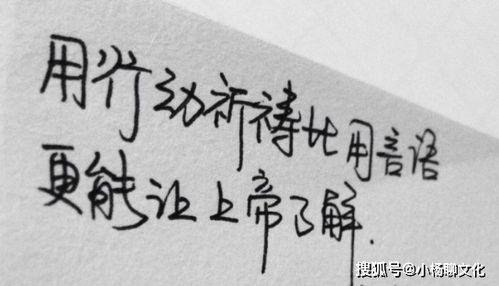 用行动祈祷比用言语
更能让上帝了解.
搜狐号@小杨聊文化